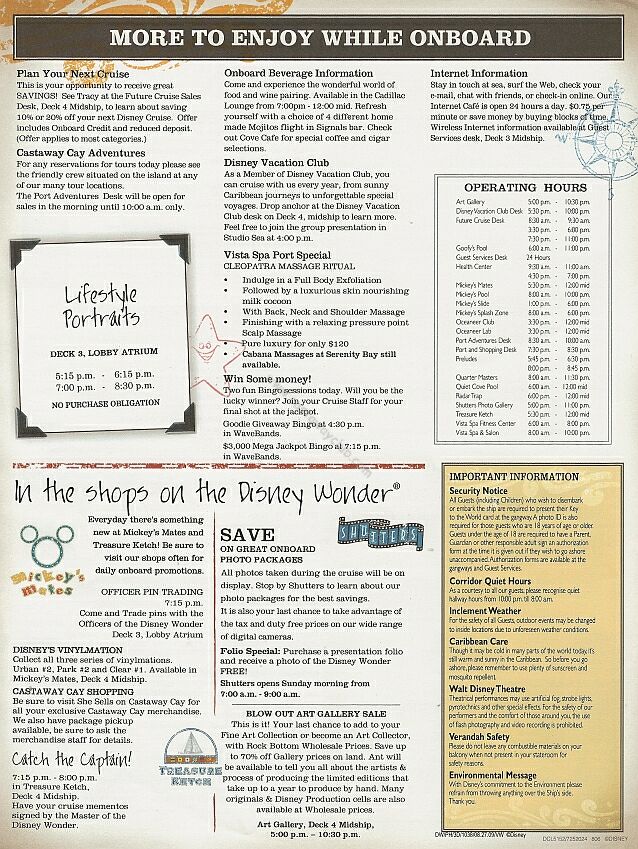 MORE TO ENJOY WHILE ONBOARD
Plan Your Next Cruise
This is your opportunity to receive great
SAVINGS! See Tracy at the Future Cruise Sales
Desk, Deck 4 Midship, to learn about saving
10% or 20% off your next Disney Cruise. Offer
includes Onboard Credit and reduced deposit.
(Offer applies to most categories.)
Castaway Cay Adventures
For any reservations for tours today please see
the friendly crew situated on the island at any
of our many tour locations.
The Port Adventures Desk will be open for
sales in the morning until 10:00 a.m. only.
Lifestyle
Portraits
DECK 3, LOBBY ATRIUM
5:15 p.m. - 6:15 p.m.
7:00 p.m. - 8:30 p.m.
NO PURCHASE OBLIGATION
Onboard Beverage Information
Come and experience the wonderful world of
food and wine pairing. Available in the Cadillac
Lounge from 7:00pm - 12:00 mid. Refresh
yourself with a choice of 4 different home
made Mojitos flight in Signals bar. Check
out Cove Cafe for special coffee and cigar
selections.
Disney Vacation Club
As a Member of Disney Vacation Club, you
can cruise with us every year, from sunny
Caribbean journeys to unforgettable special
voyages. Drop anchor at the Disney Vacation
Club desk on Deck 4, midship to learn more.
Feel free to join the group presentation in
Studio Sea at 4:00 p.m.
Vista Spa Port Special
CLEOPATRA MASSAGE RITUAL
• Indulge in a Full Body Exfoliation
• Followed by a luxurious skin nourishing
milk cocoon
• With Back, Neck and Shoulder Massage
• Finishing with a relaxing pressure point
Scalp Massage
• Pure luxury for only $120
• Cabana Massages at Serenity Bay still
available.
Win Some money!
Two fun Bingo sessions today. Will you be the
lucky winner? Join your Cruise Staff for your
final shot at the jackpot.
Goodie Giveaway Bingo at 4:30 p.m.
in WaveBands.
$3,000 Mega Jackpot Bingo at 7:15 p.m.
in WaveBands.
Internet Information
Stay in touch at sea, surf the Web, check your
e-mail, chat with friends, or check-in online. Our
Internet Café is open 24 hours a day. $0.75 per
minute or save money by buying blocks of time.
Wireless Internet information available at Guest
Services desk, Deck 3 Midship.
OPERATING HOURS
Art Gallery 5:00 p.m. - 10:30 p.m.
Disney Vacation Club Desk 5:30 p.m. - 10:00 p.m.
Future Cruise Desk 8:30 a.m. - 9:30 a.m.
3:30 p.m. - 6:00 p.m.
7:30 p.m. - 11:00 p.m.
Goofy's Pool 6:00 a.m. - 11:00 p.m.
Guest Services Desk 24 Hours
Health Center 9:30 a.m. - 11:00 a.m.
4:30 p.m. - 7:00 p.m.
Mickey's Mates 5:30 p.m. - 12:00 mid
Mickey's Pool 8:00 a.m. - 10:00 p.m.
Mickey's Slide 1:00 p.m. - 6:00 p.m.
Mickey's Splash Zone 8:00 a.m. - 6:00 p.m.
Oceaneer Club 3:30 p.m. - 12:00 mid
Oceaneer Lab 3:30 p.m. - 12:00 mid
Port Adventures Desk 8:30 a.m. - 10:00 p.m.
Port and Shopping Desk 7:30 p.m. - 8:30 p.m.
Preludes 5:45 p.m. - 6:30 p.m.
8:00 p.m. - 8:45 p.m.
Quarter Masters 8:00 a.m. - 11:30 p.m.
Quiet Cove Pool 6:00 a.m. - 12:00 mid
Radar Trap 6:00 p.m. - 12:00 mid
Shutters Photo Gallery 5:00 p.m. - 11:00 p.m.
Treasure Ketch 5:30 p.m. - 12:00 mid
Vista Spa Fitness Center 6:00 a.m. - 8:00 p.m.
Vista Spa & Salon 8:00 a.m. - 10:00 p.m.
In the shops on the Disney Wonder®
mickey's
mates
Everyday there's something
new at Mickey's Mates and
Treasure Ketch! Be sure to
visit our shops often for
daily onboard promotions.
OFFICER PIN TRADING
7:15 p.m.
Come and Trade pins with the
Officers of the Disney Wonder
Deck 3, Lobby Atrium
DISNEY'S VINYLMATION
Collect all three series of vinylmations.
Urban #2, Park #2 and Clear #1. Available in
Mickey's Mates, Deck 4 Midship.
CASTAWAY CAY SHOPPING
Be sure to visit She Sells on Castaway Cay for
all your exclusive Castaway Cay merchandise.
We also have package pickup
available, be sure to ask the
merchandise staff for details.
Catch the Captain!
7:15 p.m. - 8:00 p.m.
in Treasure Ketch,
Deck 4 Midship.
Have your cruise mementos
signed by the Master of the
Disney Wonder.
TREASURE
KETCH
SAVE
ON GREAT ONBOARD
PHOTO PACKAGES
SHUTTERS
All photos taken during the cruise will be on
display. Stop by Shutters to learn about our
photo packages for the best savings.
It is also your last chance to take advantage of
the tax and duty free prices on our wide range
of digital cameras.
Folio Special: Purchase a presentation folio
and receive a photo of the Disney Wonder
FREE!
Shutters opens Sunday morning from
7:00 a.m. - 9:00 a.m.
BLOW OUT ART GALLERY SALE
This is it! Your last chance to add to your
Fine Art Collection or become an Art Collector,
with Rock Bottom Wholesale Prices. Save up
to 70% off Gallery prices on land. Ant will
be available to tell you all about the artists &
process of producing the limited editions that
take up to a year to produce by hand. Many
originals & Disney Production cels are also
available at Wholesale prices.
Art Gallery, Deck 4 Midship,
5:00 p.m. – 10:30 p.m.
IMPORTANT INFORMATION
Security Notice
All Guests (including Children) who wish to disembark
or embark the ship are required to present their Key
to the World card at the gangway. A photo ID is also
required for those guests who are 18 years of age or older.
Guests under the age of 18 are required to have a Parent,
Guardian or other responsible adult sign an authorization
form at the time it is given out if they wish to go ashore
unaccompanied. Authorization forms are available at the
gangways and Guest Services.
Corridor Quiet Hours
As a courtesy to all our guests, please recognise quiet
hallway hours from 10:00 p.m. til 8:00 a.m.
Inclement Weather
For the safety of all Guests, outdoor events may be changed
to inside locations due to unforeseen weather conditions.
Caribbean Care
Though it may be cold in many parts of the world today, it's
still warm and sunny in the Caribbean. So before you go
ashore, please remember to use plenty of sunscreen and
mosquito repellent.
Walt Disney Theatre
Theatrical performances may use artificial fog, strobe lights,
pyrotechnics and other special effects. For the safety of our
performers and the comfort of those around you, the use
of flash photography and video recording is prohibited.
Verandah Safety
Please do not leave any combustible materials on your
balcony when not present in your stateroom for
safety reasons.
Environmental Message
With Disney's commitment to the Environment please
refrain from throwing anything over the Ship's side.
Thank you.